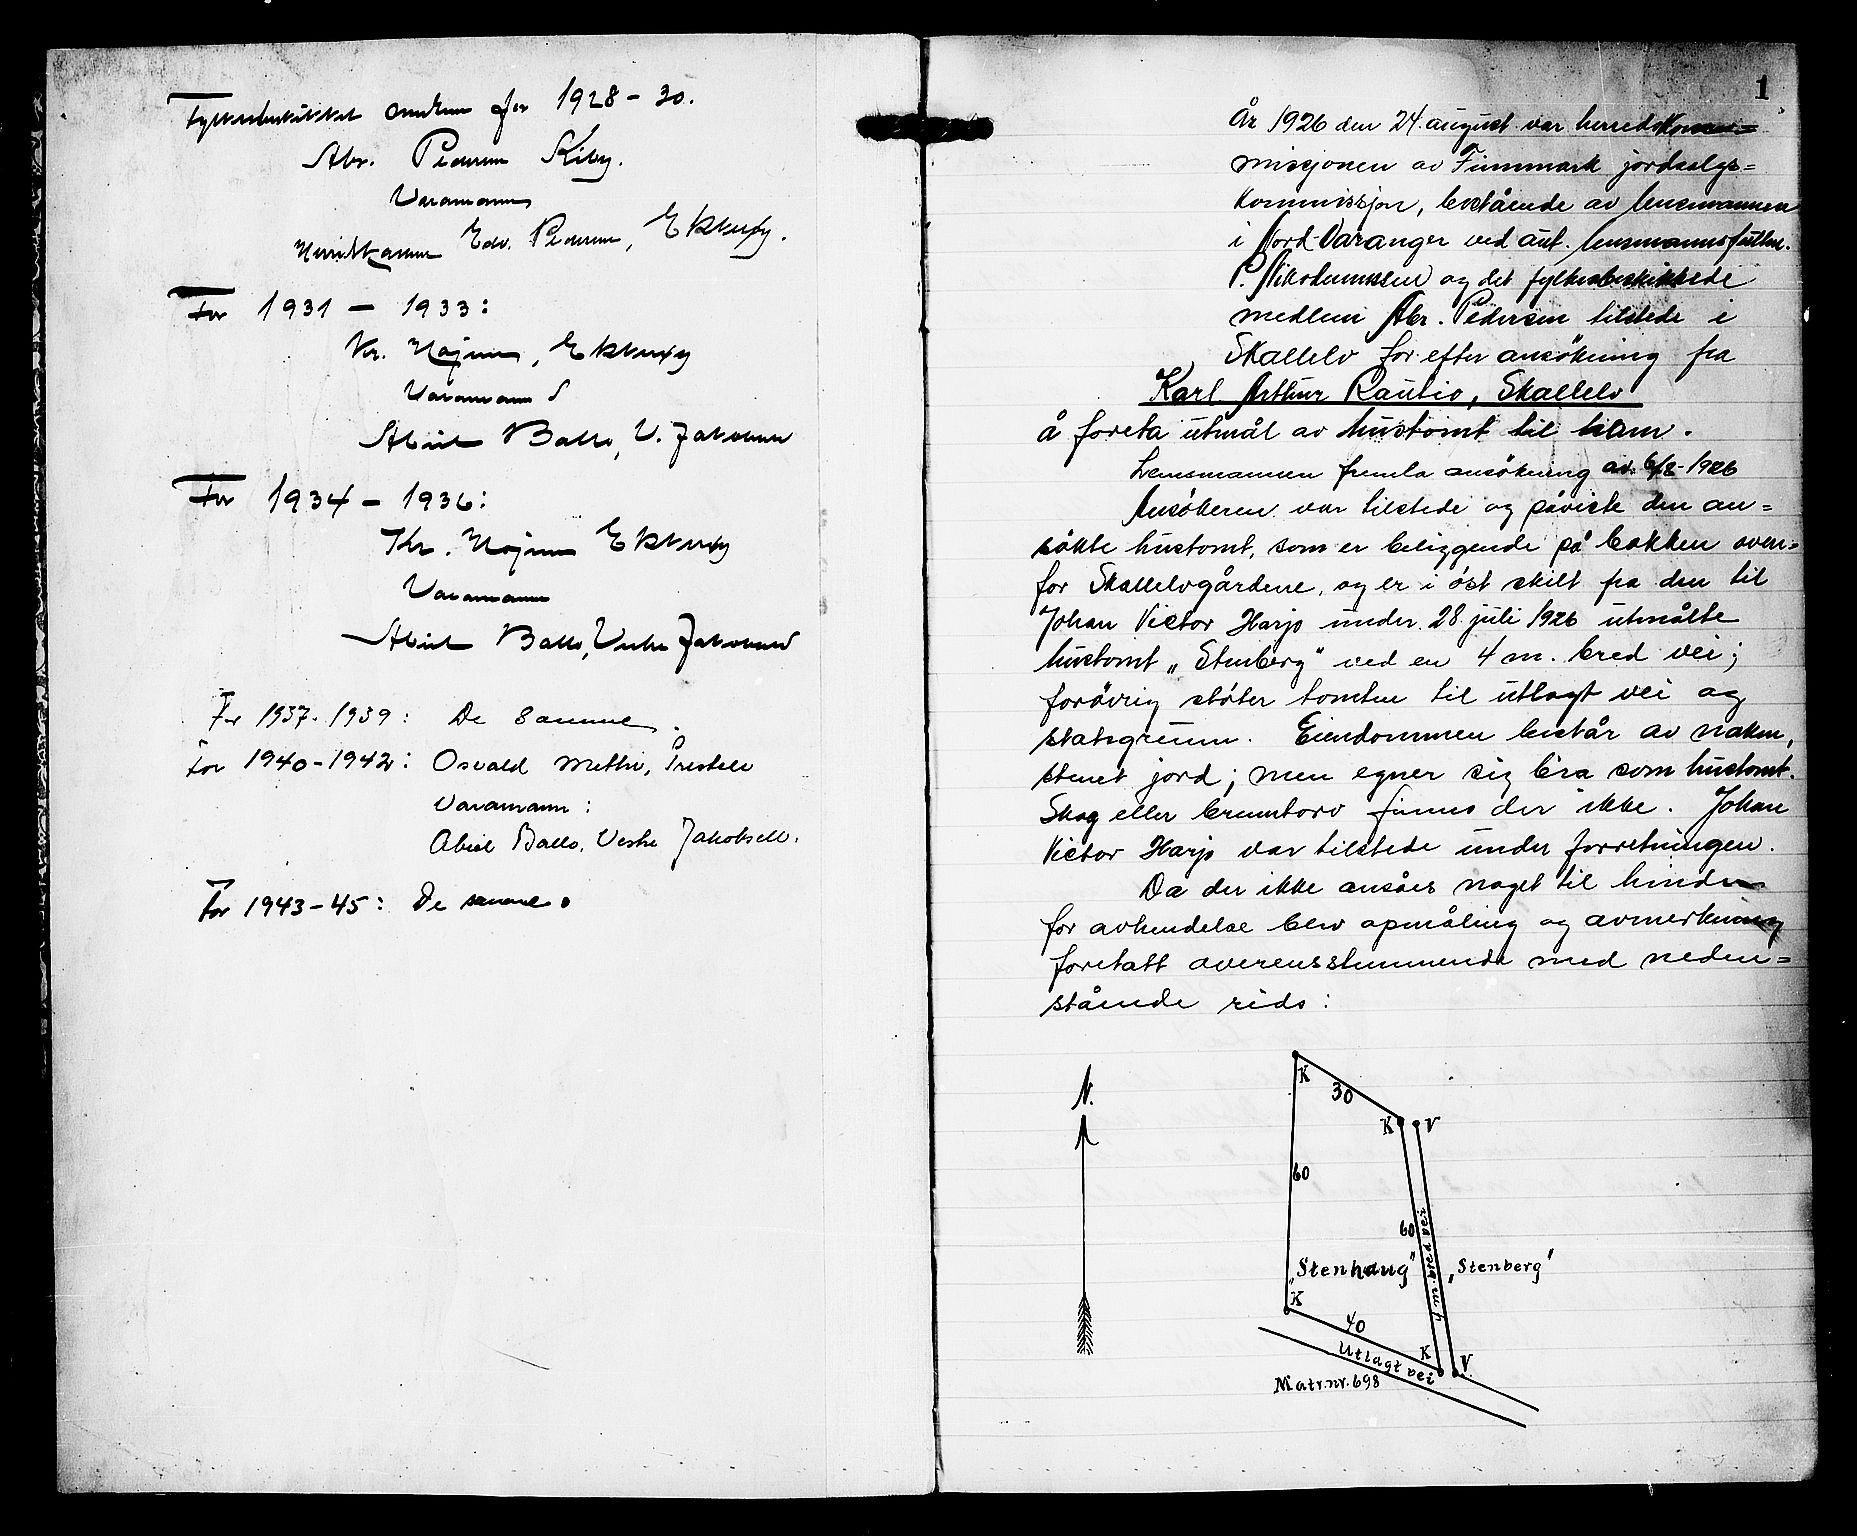 Fylkesbeskikket medlem for 1928-30.
Abr. Pedersen Kiby.
Varamann
Edv. Pedersen, Ekkerøy.
For 1931 - 1933:
Kr. Ekkerøy
Varamann
Abiel Ballo, V. Jakobselv
For 1934 - 1936:
Kr. Ekkerøy
Varamann
Abiel Ballo, Vestre Jakobselv
For 1937-1939: De samme.
For 1940-1942: Osvald Methi, Prestelv
Varamann:
Abiel Ballo, Vestre Jakobselv.
For 1943-45: De samme.
1
År 1926 den 24. august var herredskom=
missjonen av Finnmark jordsalgs=
kommissjon, bestående av lensmannen
i Nord-Varanger ved aut. lensmannsfullm.
P. Nikodemussen og det fylkesbeskikkede
medlem Abr. Pedersen tilstede i
Skallelv for efter ansökning fra
Karl Arthur Rautio, Skallelv
å foreta utmål av hustomt til ham.
Lensmannen fremla ansökning av 6/8-1926
Ansökeren var tilstede og påviste den an=
søkte hustomt, som er beliggende på bakken oven=
for Skallelvgårdene, og er i öst skilt fra den til
Johan Victor Harjo under 28 juli 1926 utmålte
hustomt „Stenberg" ved en 4 m. bred vei;
forövrig støter tomten til utlagt vei og
statsgrunn. Eiendommen består av naken,
stenet jord; men egner sig bra som hustomt.
Skog eller brenntorv finnes der ikke. Johan
Victor Harjo var tilstede under forretningen.
Da der ikke ansåes noget til hinder
for avhendelse blev opmåling og avmerkning
foretatt overensstemmende med neden=
stående rids:
N.
K
30
K V
60
60
4 m. bred vei
„Stenhaug" „Stenberg"
K
40
K V.
Utlagt vei
Matr.nr. 698